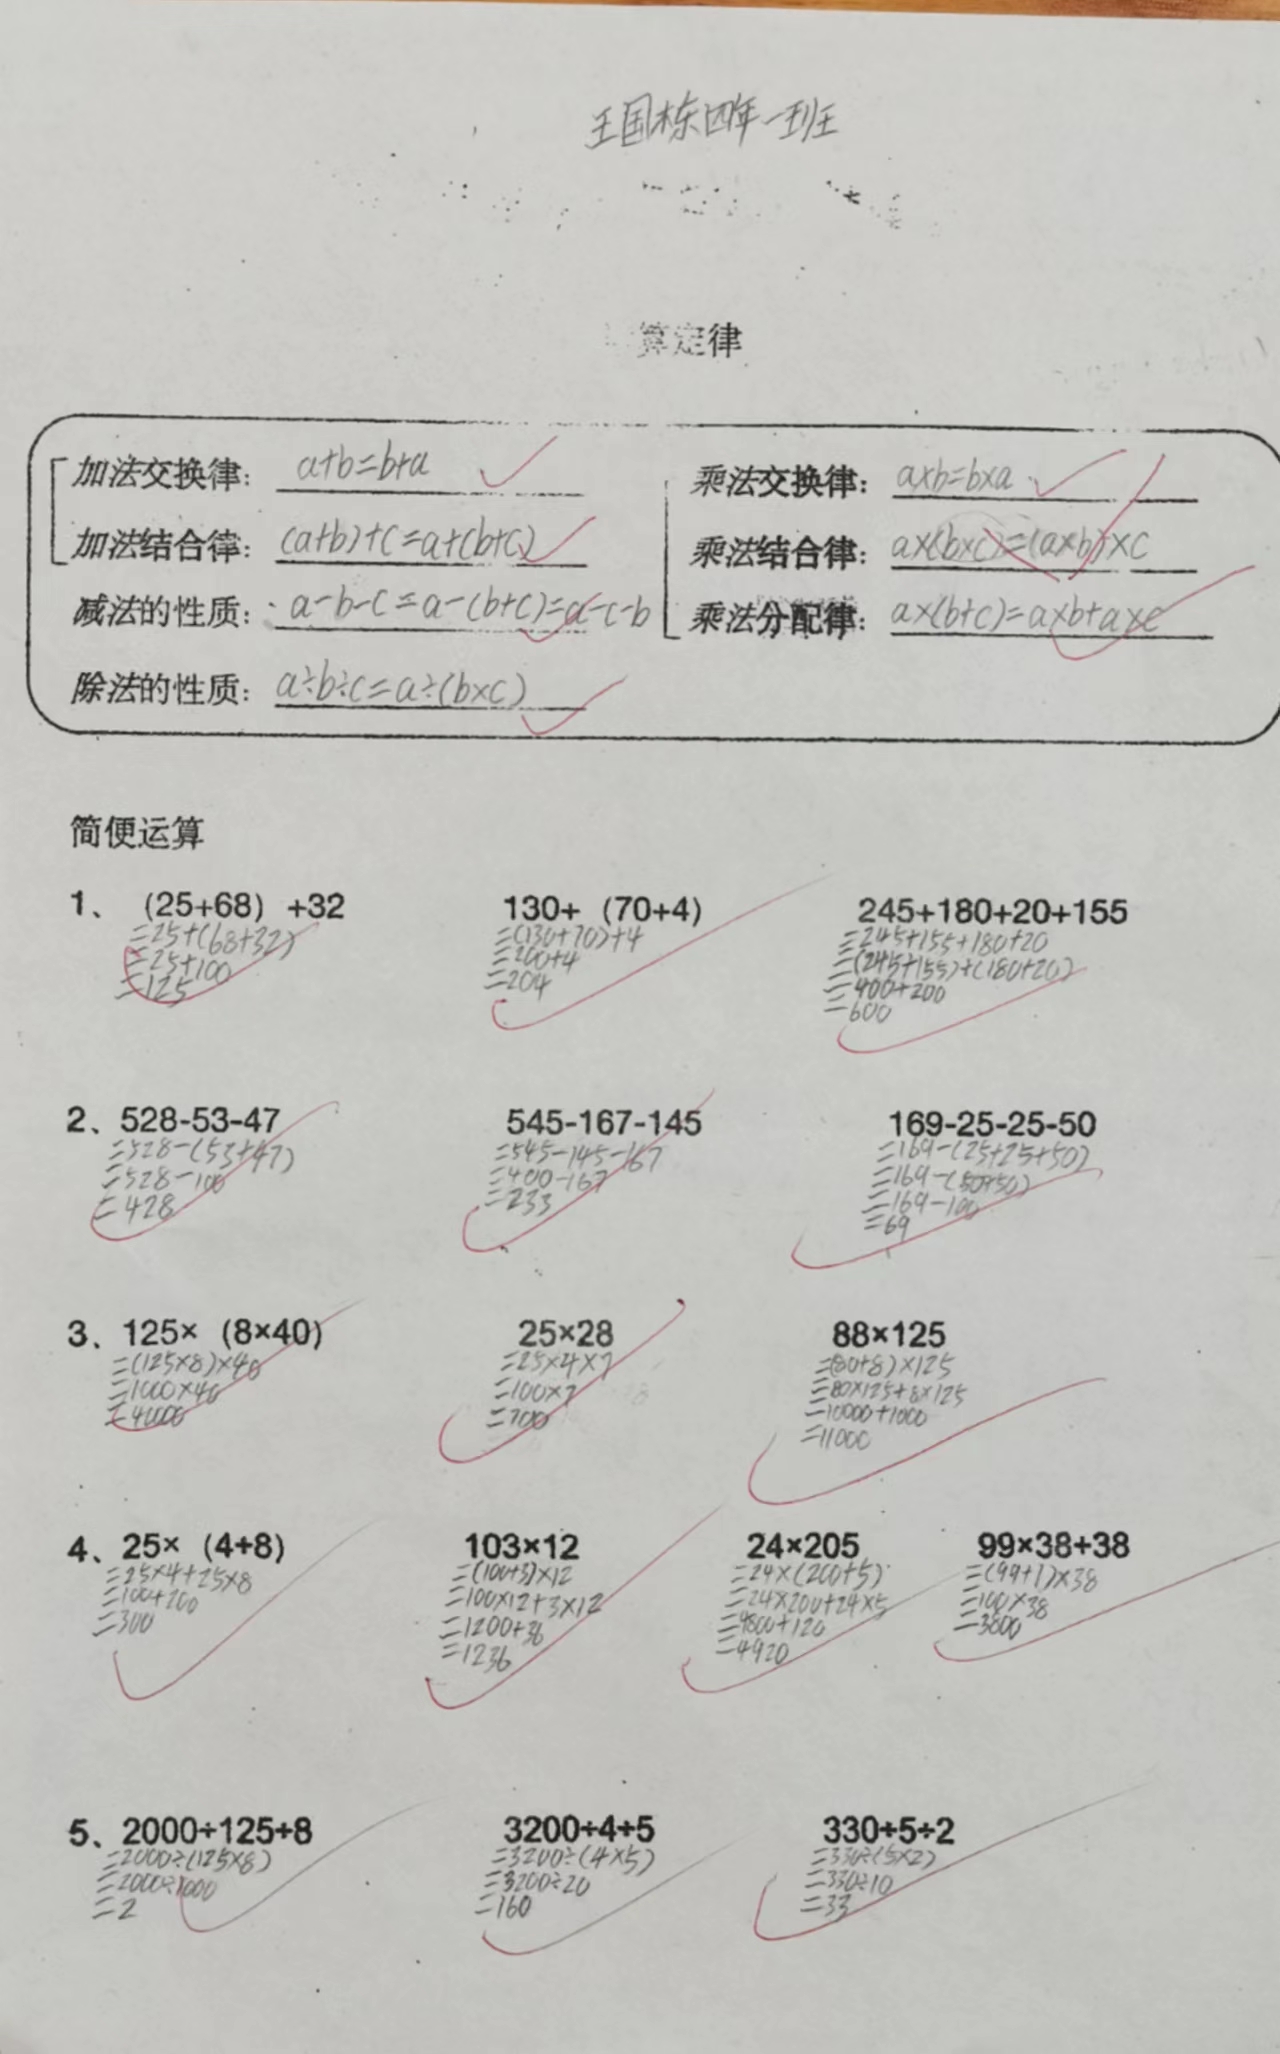 王国栋四年一班
算定律
加法交换律: a+b=b+a
乘法交换律: a×b=b×a
加法结合律: (a+b)+c=a+(b+c)
乘法结合律: a×(b×c)=(a×b)×c
减法的性质: a-b-c=a-(b+c)=a-c-b
乘法分配律: a×(b+c)=a×b+a×c
除法的性质: a÷b÷c=a÷(b×c)
简便运算
1、 (25+68) +32
=25+(68+32)
=25+100
=125
130+ (70+4)
=(130+70)+4
=200+4
=204
245+180+20+155
=245+155+180+20
=(245+155)+(180+20)
=400+200
=600
2、528-53-47
=528-(53+47)
=528-100
=428
545-167-145
=545-145-167
=400-167
=233
169-25-25-50
=169-(25+25+50)
=169-(50+50)
=169-100
=69
3、125× (8×40)
=(125×8)×40
=1000×40
=40000
25×28
=25×4×7
=100×7
=700
88×125
=(80+8)×125
=80×125+8×125
=10000+1000
=11000
4、25× (4+8)
=25×4+25×8
=100+200
=300
103×12
=(100+3)×12
=100×12+3×12
=1200+36
=1236
24×205
=24×(200+5)
=24×200+24×5
=4800+120
=4920
99×38+38
=(99+1)×38
=100×38
=3800
5、2000÷125÷8
=2000÷(125×8)
=2000÷1000
=2
3200÷4÷5
=3200÷(4×5)
=3200÷20
=160
330÷5÷2
=330÷(5×2)
=330÷10
=33